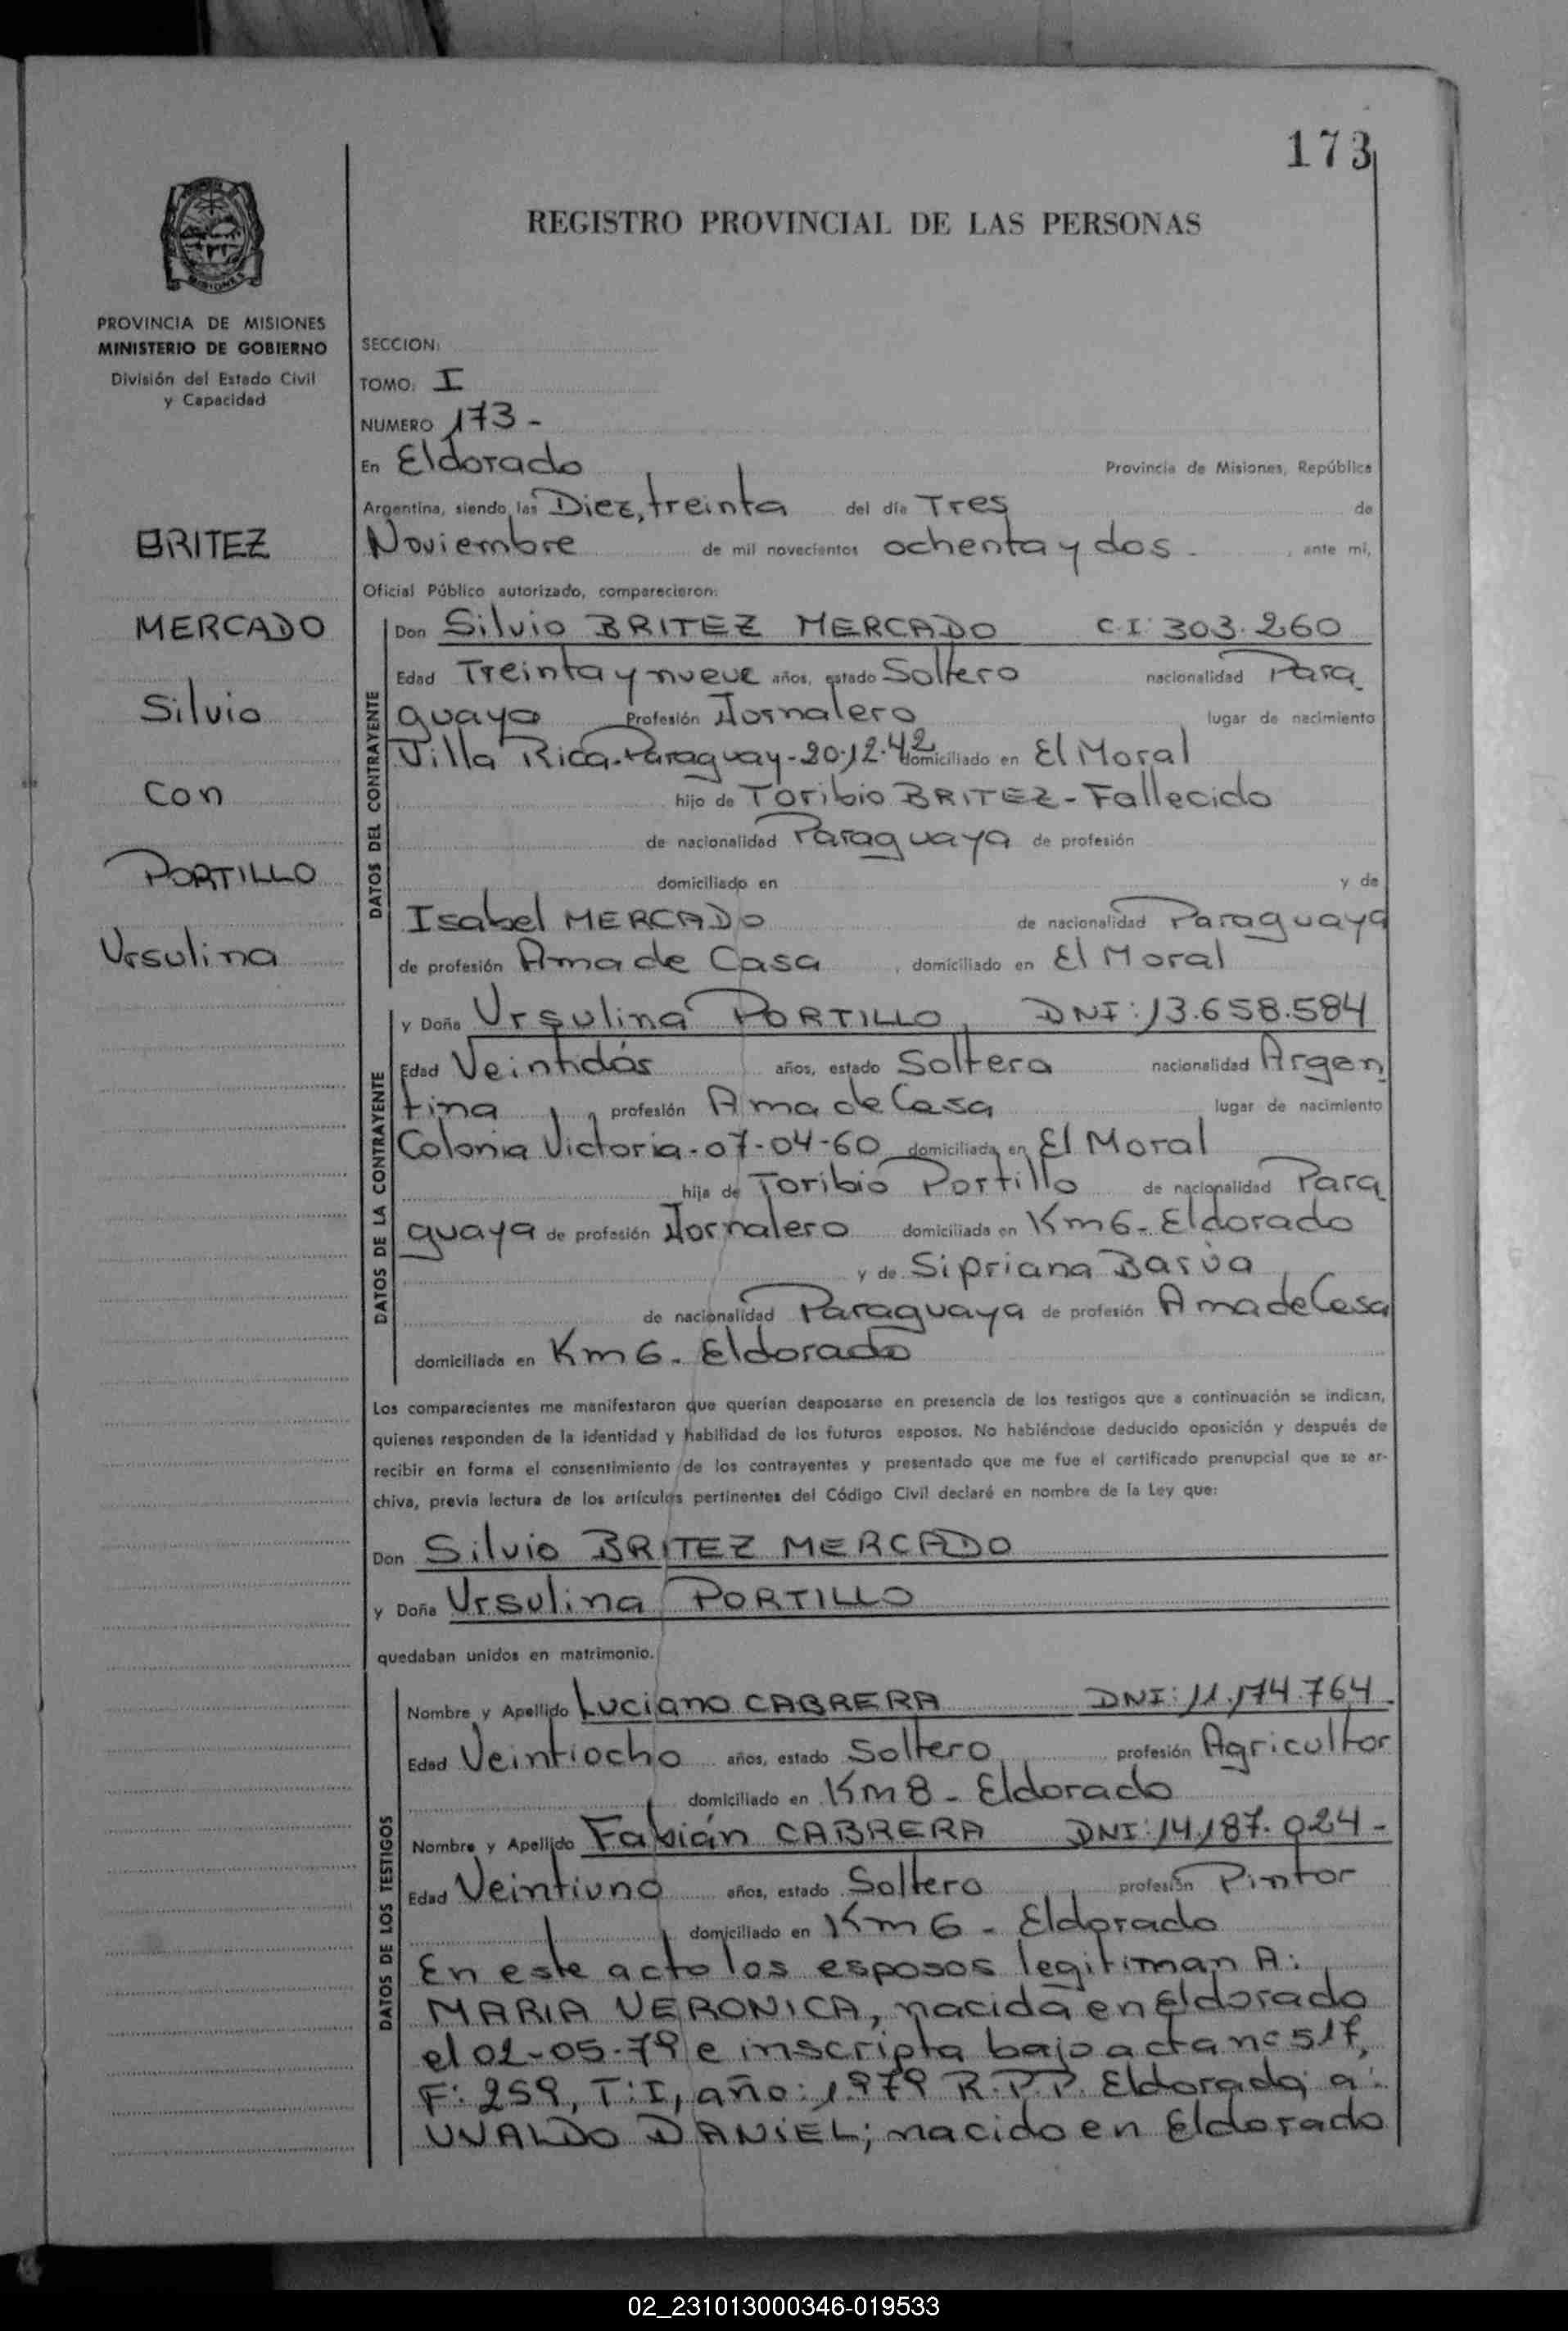 173
REGISTRO PROVINCIAL DE LAS PERSONAS
MISIONES
PROVINCIA DE MISIONES
MINISTERIO DE GOBIERNO
División del Estado Civil
y Capacidad
BRITEZ
MERCADO
Silvio
Con
PORTILLO
Ursulina
SECCION:
TOMO: I
NUMERO 173 -
En Eldorado Provincia de Misiones, República
Argentina, siendo las Diez, treinta del día Tres de
Noviembre de mil novecientos ochenta y dos - , ante mí,
Oficial Público autorizado, comparecieron:
DATOS DEL CONTRAYENTE
Don Silvio BRITEZ MERCADO C.I: 303.260
Edad Treinta y nueve años, estado Soltero nacionalidad Para
guaya Profesión Jornalero lugar de nacimiento
Villa Rica-Paraguay-20.12.42 domiciliado en El Moral
hijo de Toribio BRITEZ - Fallecido
de nacionalidad Paraguaya de profesión
domiciliado en y de
Isabel MERCADO de nacionalidad Paraguaya
de profesión Ama de Casa , domiciliado en El Moral
DATOS DE LA CONTRAYENTE
y Doña Ursulina PORTILLO DNI: 13.658.584
Edad Veintidós años, estado Soltera nacionalidad Argen
tina , profesión Ama de Casa lugar de nacimiento
Colonia Victoria-07-04-60 domiciliada en El Moral
hija de Toribio Portillo de nacionalidad Para
guaya de profesión Jornalero domiciliada en Km6- Eldorado
y de Sipriana Barúa
de nacionalidad Paraguaya de profesión Ama de Casa
domiciliada en Km 6- Eldorado
Los comparecientes me manifestaron que querían desposarse en presencia de los testigos que a continuación se indican,
quienes responden de la identidad y habilidad de los futuros esposos. No habiéndose deducido oposición y después de
recibir en forma el consentimiento de los contrayentes y presentado que me fue el certificado prenupcial que se ar-
chiva, previa lectura de los artículos pertinentes del Código Civil declaré en nombre de la Ley que:
Don Silvio BRITEZ MERCADO
y Doña Ursulina PORTILLO
quedaban unidos en matrimonio.
DATOS DE LOS TESTIGOS
Nombre y Apellido Luciano CABRERA DNI: 11.174.764
Edad Veintiocho años, estado Soltero profesión Agricultor
domiciliado en Km 8 - Eldorado
Nombre y Apellido Fabián CABRERA DNI: 14.187.024-
Edad Veintiuno años, estado Soltero profesión Pintor
domiciliado en Km 6 - Eldorado
En este acto los esposos legitiman A:
MARIA VERONICA, nacida en Eldorado
el 02-05-79 e inscripta bajo acta nº 517,
F: 259, T: I, año: 1979 R.P.P. Eldorado; a:
UVALDO DANIEL; nacido en Eldorado
02_231013000346-019533